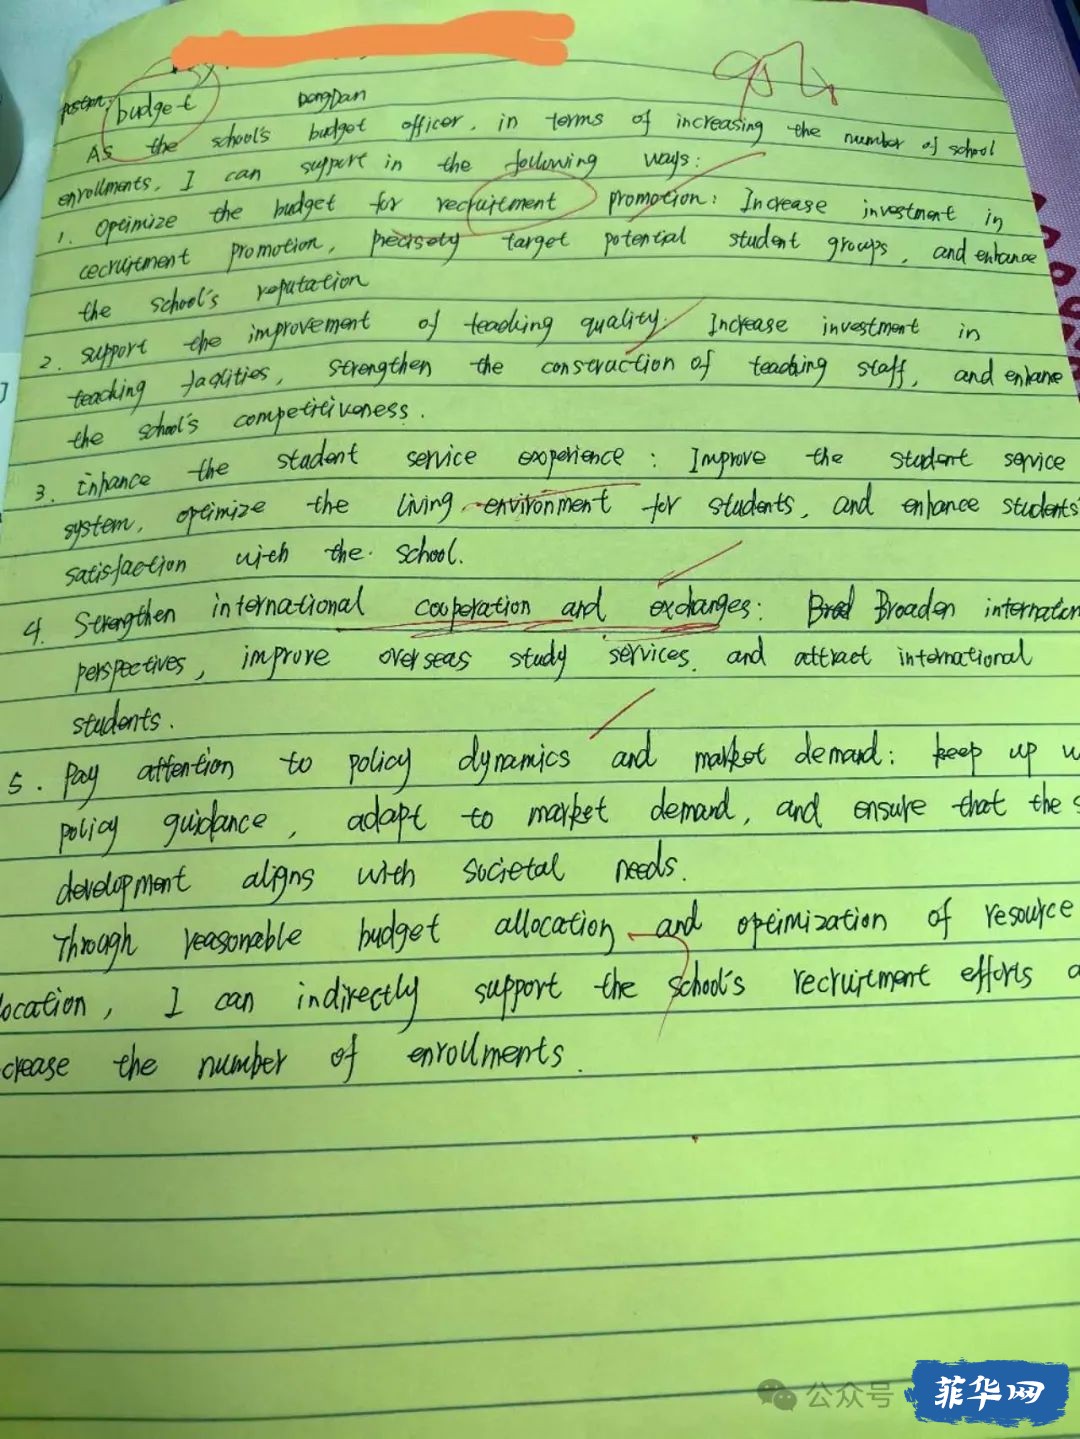 position: budget DongDan
As the school's budget officer, in terms of increasing the number of school
enrollments, I can support in the following ways:
1. Optimize the budget for recruitment promotion: Increase investment in
recruitment promotion, precisely target potential student groups, and enhance
the school's reputation
2. support the improvement of teaching quality: Increase investment in
teaching facilities, strengthen the construction of teaching staff, and enhance
the school's competitiveness.
3. Enhance the student service experience: Improve the student service
system, optimize the living environment for students, and enhance students'
satisfaction with the school.
4. Strengthen international cooperation and exchanges: Broaden internation
perspectives, improve overseas study services, and attract international
students.
5. Pay attention to policy dynamics and market demand: keep up w
policy guidance, adapt to market demand, and ensure that the s
development aligns with societal needs.
Through reasonable budget allocation and optimization of resource
location, I can indirectly support the school's recruitment efforts a
crease the number of enrollments.
公众号 菲华网